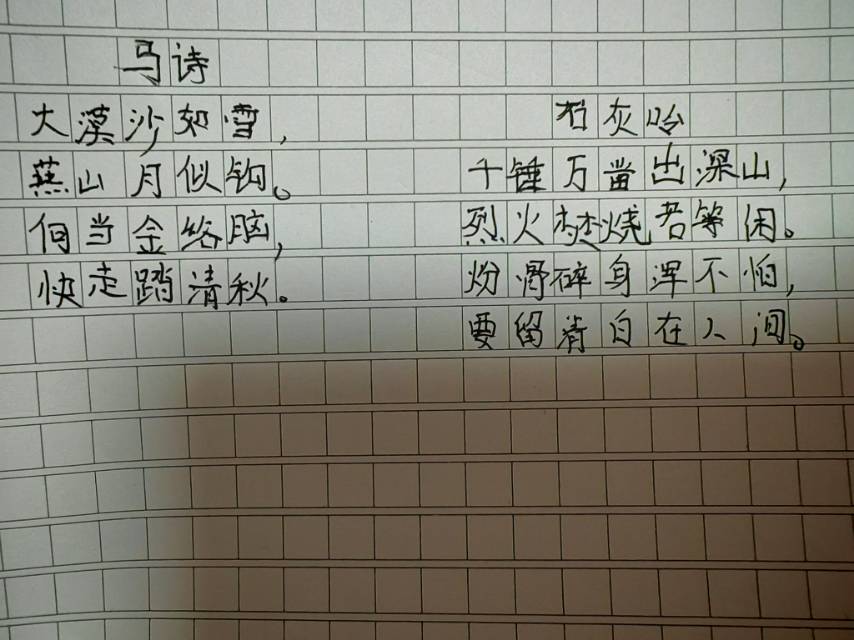 马诗
大漠沙如雪,
燕山月似钩。
何当金络脑,
快走踏清秋。
石灰吟
千锤万凿出深山,
烈火焚烧若等闲。
粉骨碎身浑不怕,
要留青白在人间。